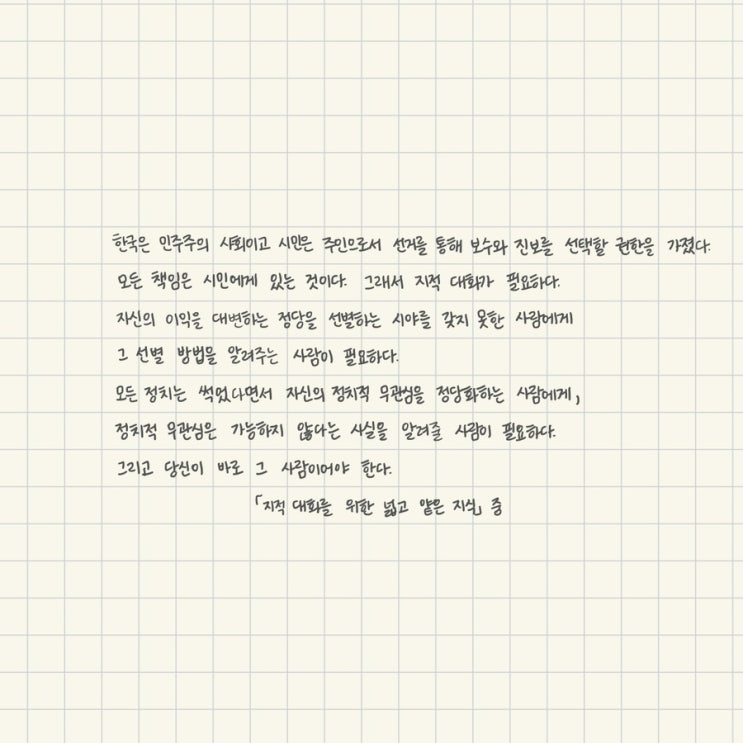 한국은 민주주의 사회이고 시민은 주인으로서 선거를 통해 보수와 진보를 선택할 권한을 가졌다.
모든 책임은 시민에게 있는 것이다. 그래서 지적 대화가 필요하다.
자신의 이익을 대변하는 정당을 선별하는 시야를 갖지 못한 사람에게
그 선별 방법을 알려주는 사람이 필요하다.
모든 정치는 썩었다면서 자신의 정치적 무관심을 정당화하는 사람에게,
정치적 무관심은 가능하지 않다는 사실을 알려줄 사람이 필요하다.
그리고 당신이 바로 그 사람이어야 한다.
「지적 대화를 위한 넓고 얕은 지식」 중